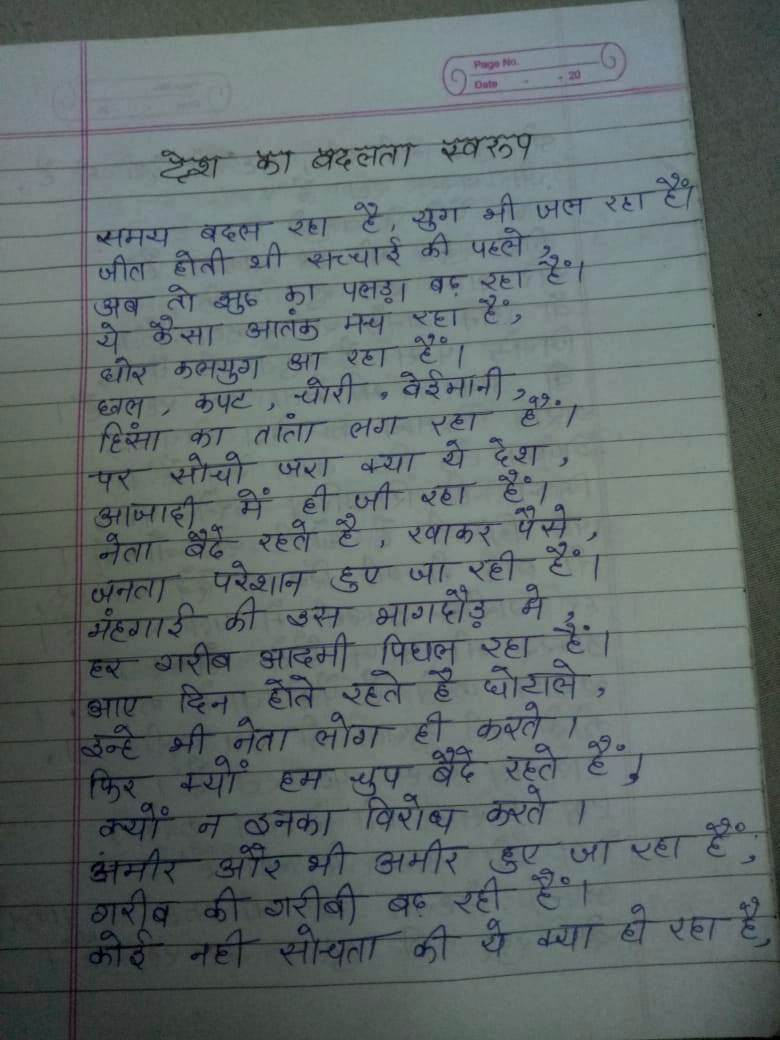 Page No.
Date - - 20
देश का बदलता स्वरूप
समय बदल रहा है, युग भी जल रहा हैं।
जीत होती थी सच्चाई की पहले,
अब तो झुठ का पलड़ा बढ़ रहा हैं।
ये कैसा आतंक मच रहा हैं,
घोर कलयुग आ रहा हैं।
छल, कपट, चोरी, बेईमानी,
हिंसा का तांता लग रहा हैं।
पर सोचो जरा क्या ये देश,
आजादी में ही जी रहा हैं।
नेता बैठे रहते है, खाकर पैसे,
जनता परेशान हुए जा रही हैं।
मंहगाई की इस भागदौड़ मे,
हर गरीब आदमी पिघल रहा हैं।
आए दिन होते रहते है घोटाले,
इन्हे भी नेता लोग ही करते।
फिर क्यों हम चुप बैठे रहते हैं,
क्यों न इनका विरोध करते।
अमीर और भी अमीर हुए जा रहा हैं,
गरीब की गरीबी बढ़ रही हैं।
कोई नही सोचता की ये क्या हो रहा है,